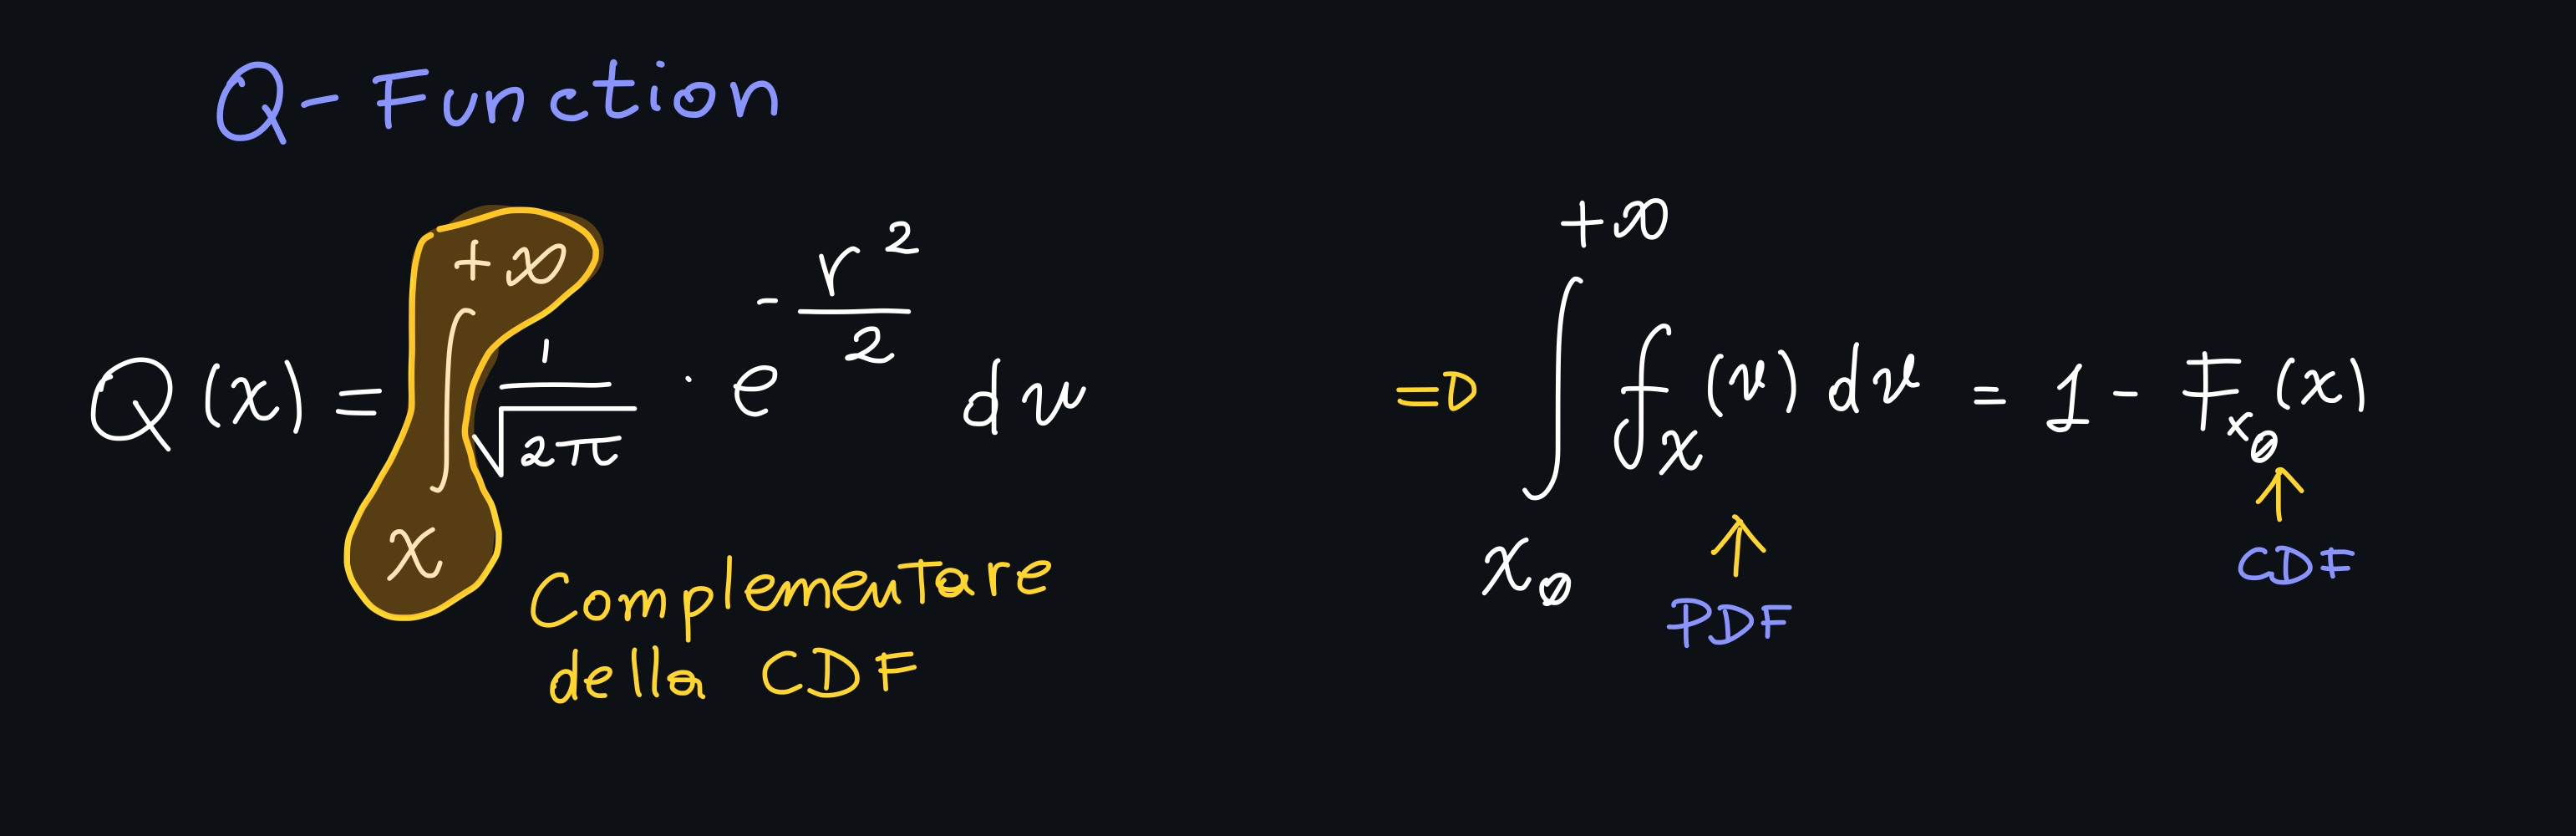 Q-Function
Q(x) = ∫ₓ^{+∞} 1/√(2π) · e^{-r²/2} dv
Complementare
della CDF
=D ∫_{x₀}^{+∞} f_x(v) dv = 1 - F_{x₀}(x)
PDF
CDF